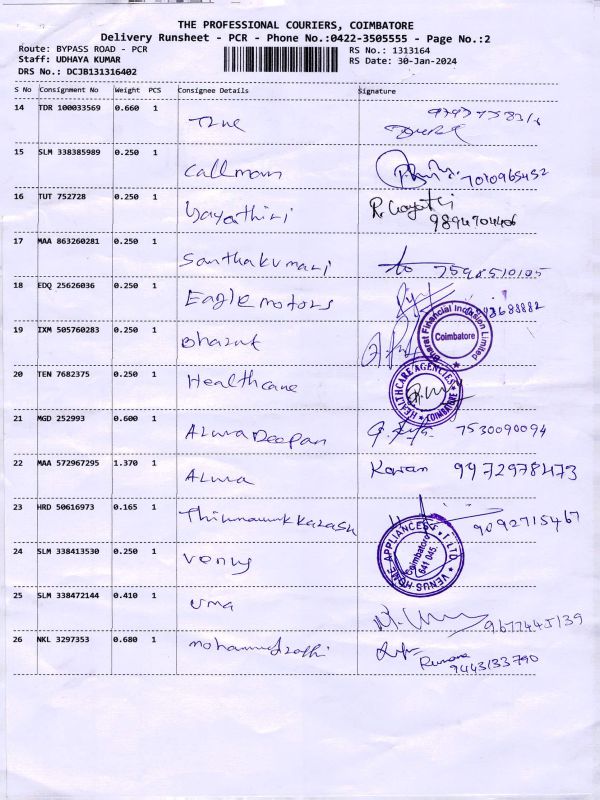 THE PROFESSIONAL COURIERS, COIMBATORE
Delivery Runsheet - PCR - Phone No.:0422-3505555 - Page No.:2
Route: BYPASS ROAD - PCR RS No.: 1313164
Staff: UDHAYA KUMAR RS Date: 30-Jan-2024
DRS No.: DCJB131316402
S No Consignment No Weight PCS Consignee Details Signature
14 TDR 100033569 0.660 1
15 SLM 338385989 0.250 1 Callmom 7010965452
16 TUT 752728 0.250 1 Gayathiri R. Gayatri
9894704406
17 MAA 863260281 0.250 1 Santhakumari 7598510105
18 EDQ 25626036 0.250 1 Eagle motors
19 IXM 505760283 0.250 1 Bharat Bharat Financial Inclusion Limited Coimbatore
20 TEN 7682375 0.250 1 Healthcare HEALTHCARE AGENCIES COIMBATORE
21 MGD 252993 0.600 1 Alwa Deepan 7530090094
22 MAA 572967295 1.370 1 Alwa 9972978473
23 HRD 50616973 0.165 1 9092715467
24 SLM 338413530 0.250 1 Venus VENUS HOME APPLIANCES P LTD. Coimbatore 641 045.
25 SLM 338472144 0.410 1 Uma 9677445139
26 NKL 3297353 0.680 1
9443133790